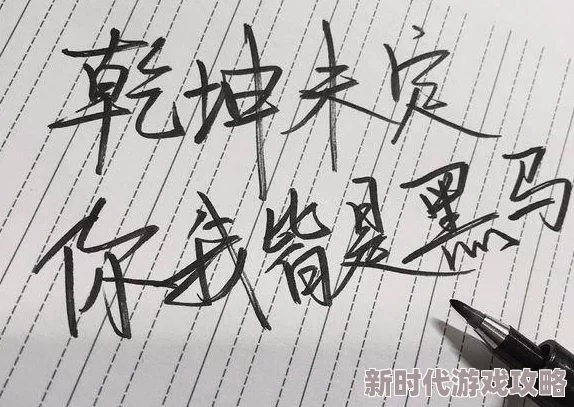 乾坤未定
你我皆是黑马
新时代游戏攻略